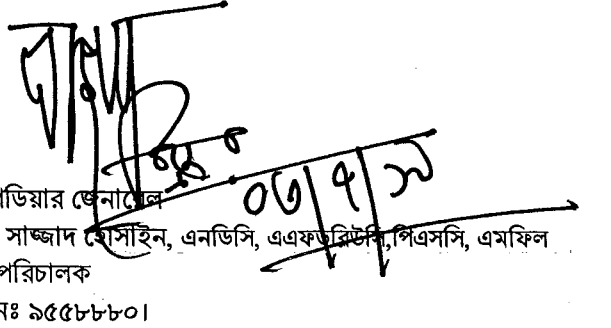 ০৩|৭|১৯
াডিয়ার জেনারেল
সাজ্জাদ হোসাইন, এনডিসি, এএফডব্লিউসি,পিএসসি, এমফিল
পরিচালক
নঃ ৯৫৫৮৮৮০১